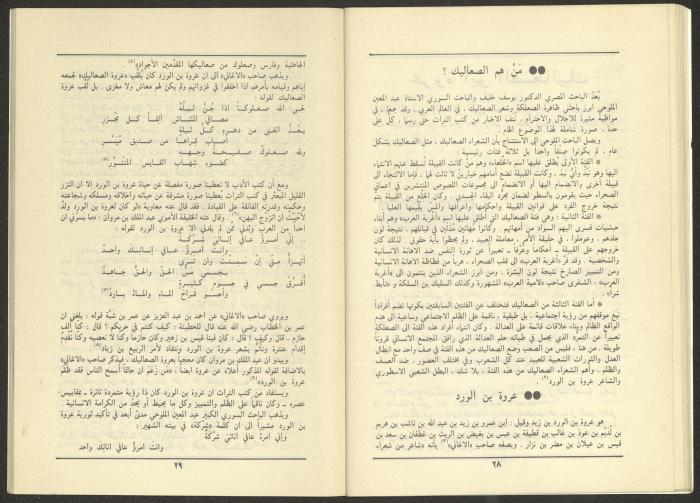 ●● مَنْ هم الصعاليك ؟
يُعدّ الباحث المصري الدكتور يوسف خليف والباحث السوري الأستاذ عبد المعين
الملوحي أبرز باحثي ظاهرة الصعلكة وشعر الصعاليك ، في العالم العربي . وقد جمعا ، في
مواظبة مثيرة للاجلال والاحترام ، نتف الاخبار من كتب التراث حتى رسما ، كل على
حدة ، صورة شاملة لهذا الموضوع الهام .
ويصل الباحث الملوحي الى الاستنتاج بأن الشعراء الصعاليك ، مثل الصعاليك بشكل
عام ، لم يكونوا صنفا واحداً بل ثلاثة فئات رئيسية :
* الفئة الأولى يُطلق عليها اسم «الخلعاء» وهم مَنْ كانت القبيلة تُسقط عنهم الانتماء
اليها وهو نَبْذ وأيّ نَبْذ . وكانت القبيلة تضع أمامهم خيارين لا ثالث لهما ، فإما الالتجاء الى
قبيلة أخرى والانضمام اليها أو الانضمام الى مجموعات اللصوص المنتشرين في أعماق
الصحراء حيث يقومون بالسطو لضمان مجرّد البقاء الجسدي . وكان الخلع من القبيلة يتم
نتيجة خروج الفرد على قوانين القبيلة واحكامها وأعرافها والمسّ بقيمها العليا .
* الفئة الثانية : وهي فئة الصعاليك التي أُطلق عليها اسم «أغربة العرب» وهم أبناء
حبشيات فسرى اليهم السواد من أمهاتهم . وكانوا مُهانين مُذلّين في قبائلهم ، نتيجة لون
جلدهم ، وعوملوا ، في حقيقة الأمر ، معاملة العبيد . ولم يحظوا بأية حقوق . لذلك كان
خروجهم على القبيلة ــ أحكاماً وعرفاً ــ تعبيراً عن ثورة النفس ضد الاهانة الانسانية
والشخصية . وقد فرّ «أغربة العرب» الى قلب الصحراء ، هرباً من فظاظة الاهانة الانسانية
ومن التمييز الصارخ نتيجة لون البشرة . ومن أبرز الشعراء الذين ينتمون الى «أغربة
العرب» : الشنفرى صاحب «لامية العرب» المشهورة وكذلك السليك بن السلكة و «تأبط
شراً» .
* أما الفئة الثالثة من الصعاليك فتختلف عن الفئتين السابقتين بكونها تضم أفراداً
نبع موقفهم من رؤية اجتماعية ، بل طبقية ، ناقمة على الظلم الاجتماعي وساعية الى هدم
الواقع الظالم وبناء علاقات قائمة على العدالة . وكان انتماء أفراد هذه الفئة الى الصعلكة
تعبيراً عن التمرد الذي يحمل في طياته حلم العدالة الذي رافق المجتمع الانساني قرونا
طويلة . من هنا ، فليس من الصعب وضع الصعاليك من هذه الفئة في صف واحد مع ابطال
العدل والثورات الشعبية للعبيد عند كل الشعوب وفي مختلف العصور ، ضد العسف
والظلم . وأهم الشعراء الصعاليك من هذه الفئة ، بلا شك ، البطل الشعبي الاسطوري
والشاعر عروة بن الورد (٣)
●● عروة بن الورد
هو عروة بن الورد بن زيد وقيل : ابن عمرو بن زيد بن عبد الله بن ناشب بن هريم
بن لُدَيْم بن عوذ بن غالب بن قطيعة بن عبس بن بغيض بن الريث بن غطفان بن سعد بن
قيس بن عيلان بن مضر بن نزار . ويصفه صاحب «الاغاني» بأنه «شاعر من شعراء
٢٨
الجاهلية وفارس وصعلوك من صعاليكها المقدّمين الأجواد» (٤) .
ويذهب صاحب «الاغاني» الى ان عروة بن الورد كان يُلقّب «عروة الصعاليك» لجمعه
إياهم وقيامه بأمرهم اذا اخفقوا في غزواتهم ولم يكن لهم معاش ولا مغزى . بل لُقّب عروة
الصعاليك لقوله :
لحى الله صعلوكاً اذا جُنّ ليلُهُ
مصافي المُشاش آلفاً كل مجْزر
يعُدّ الغنى من دهره كل ليلةٍ
أصاب قِراها من صديق مُيَسَّر
ولله صعلوك صفيحةُ وجهه
كضوء شهاب القابس المتنوِّر (٥)
ومع أن كتب الأدب لا تعطينا صورة مفصلة عن حياة عروة بن الورد الا ان النزر
القليل المبعثر في كتب التراث يُعطينا صورة مشرقة عن حياته وأخلاقه ومسلكه وشجاعته
وحكمته وقدرته الفائقة على القيادة . فقد قال عنه معاوية «لو كان لعروة بن الورد ولدٌ
لأحببت ان أتزوّج اليهم» . وقال عنه الخليفة الأموي عبد الملك بن مروان : «ما يسرّني ان
أحدا من العرب ولدني ممن لم يلدني الا عروة بن الورد لقوله :
.. إني امرؤٌ عافي إنائيَ شِرْكةٌ
وانت امرؤٌ عافي إنائِك واحدُ
أتهزأ مني إن سَمِنتَ وان ترى
بجسمي مسّ الحق والحقُّ جاهدُ
أُفرّق جسمي في جسوم كثيرةٍ
وأحسو قَراحَ الماءِ والماءُ باردُ (٦)
ويروي صاحب «الاغاني» عن احمد بن عبد العزيز عن عمر بن شبّة قوله : بلغني ان
عمر بن الخطاب رضي الله عنه قال للحطيئة : كيف كنتم في حربكم ؟ قال : كنا ألْف
حازم . قال : وكيف ؟ قال : كان فينا قيس بن زهير وكان حازما وكنا لا نعصيه وكنا نُقدم
إقدام عنترة ونأتمُّ بشعر عروة بن الورد وننقاد لأمر الربيع بن زياد (٧) .
ويبدو ان عبد الملك بن مروان كان معجبا بعروة الصعاليك ، فيذكر صاحب «الاغاني»
بالاضافة لقوله المذكور أعلاه عن عروة ايضا : «من زعم ان حاتما أسمح الناس فقد ظلم
عروة بن الورد»
ويستفاد من كتب التراث ان عروة بن الورد كان ذا رؤية متمردة ثائرة ــ بمقاييس
عصره ــ وكان ناقماً على الظلم والتمييز وكل ما يحيط أو يحدّ من الكرامة الانسانية .
ويذهب الباحث السوري الكبير عبد المعين الملوحي مدىً أبعد في تأكيد ثورية عروة
بن الورد مشيرا الى ان كلمة «شِركة» في بيته الشهير :
وإني امرؤ عافي انائيَ شركةٌ
وانت امرؤ عافي انائك واحد
٢٩